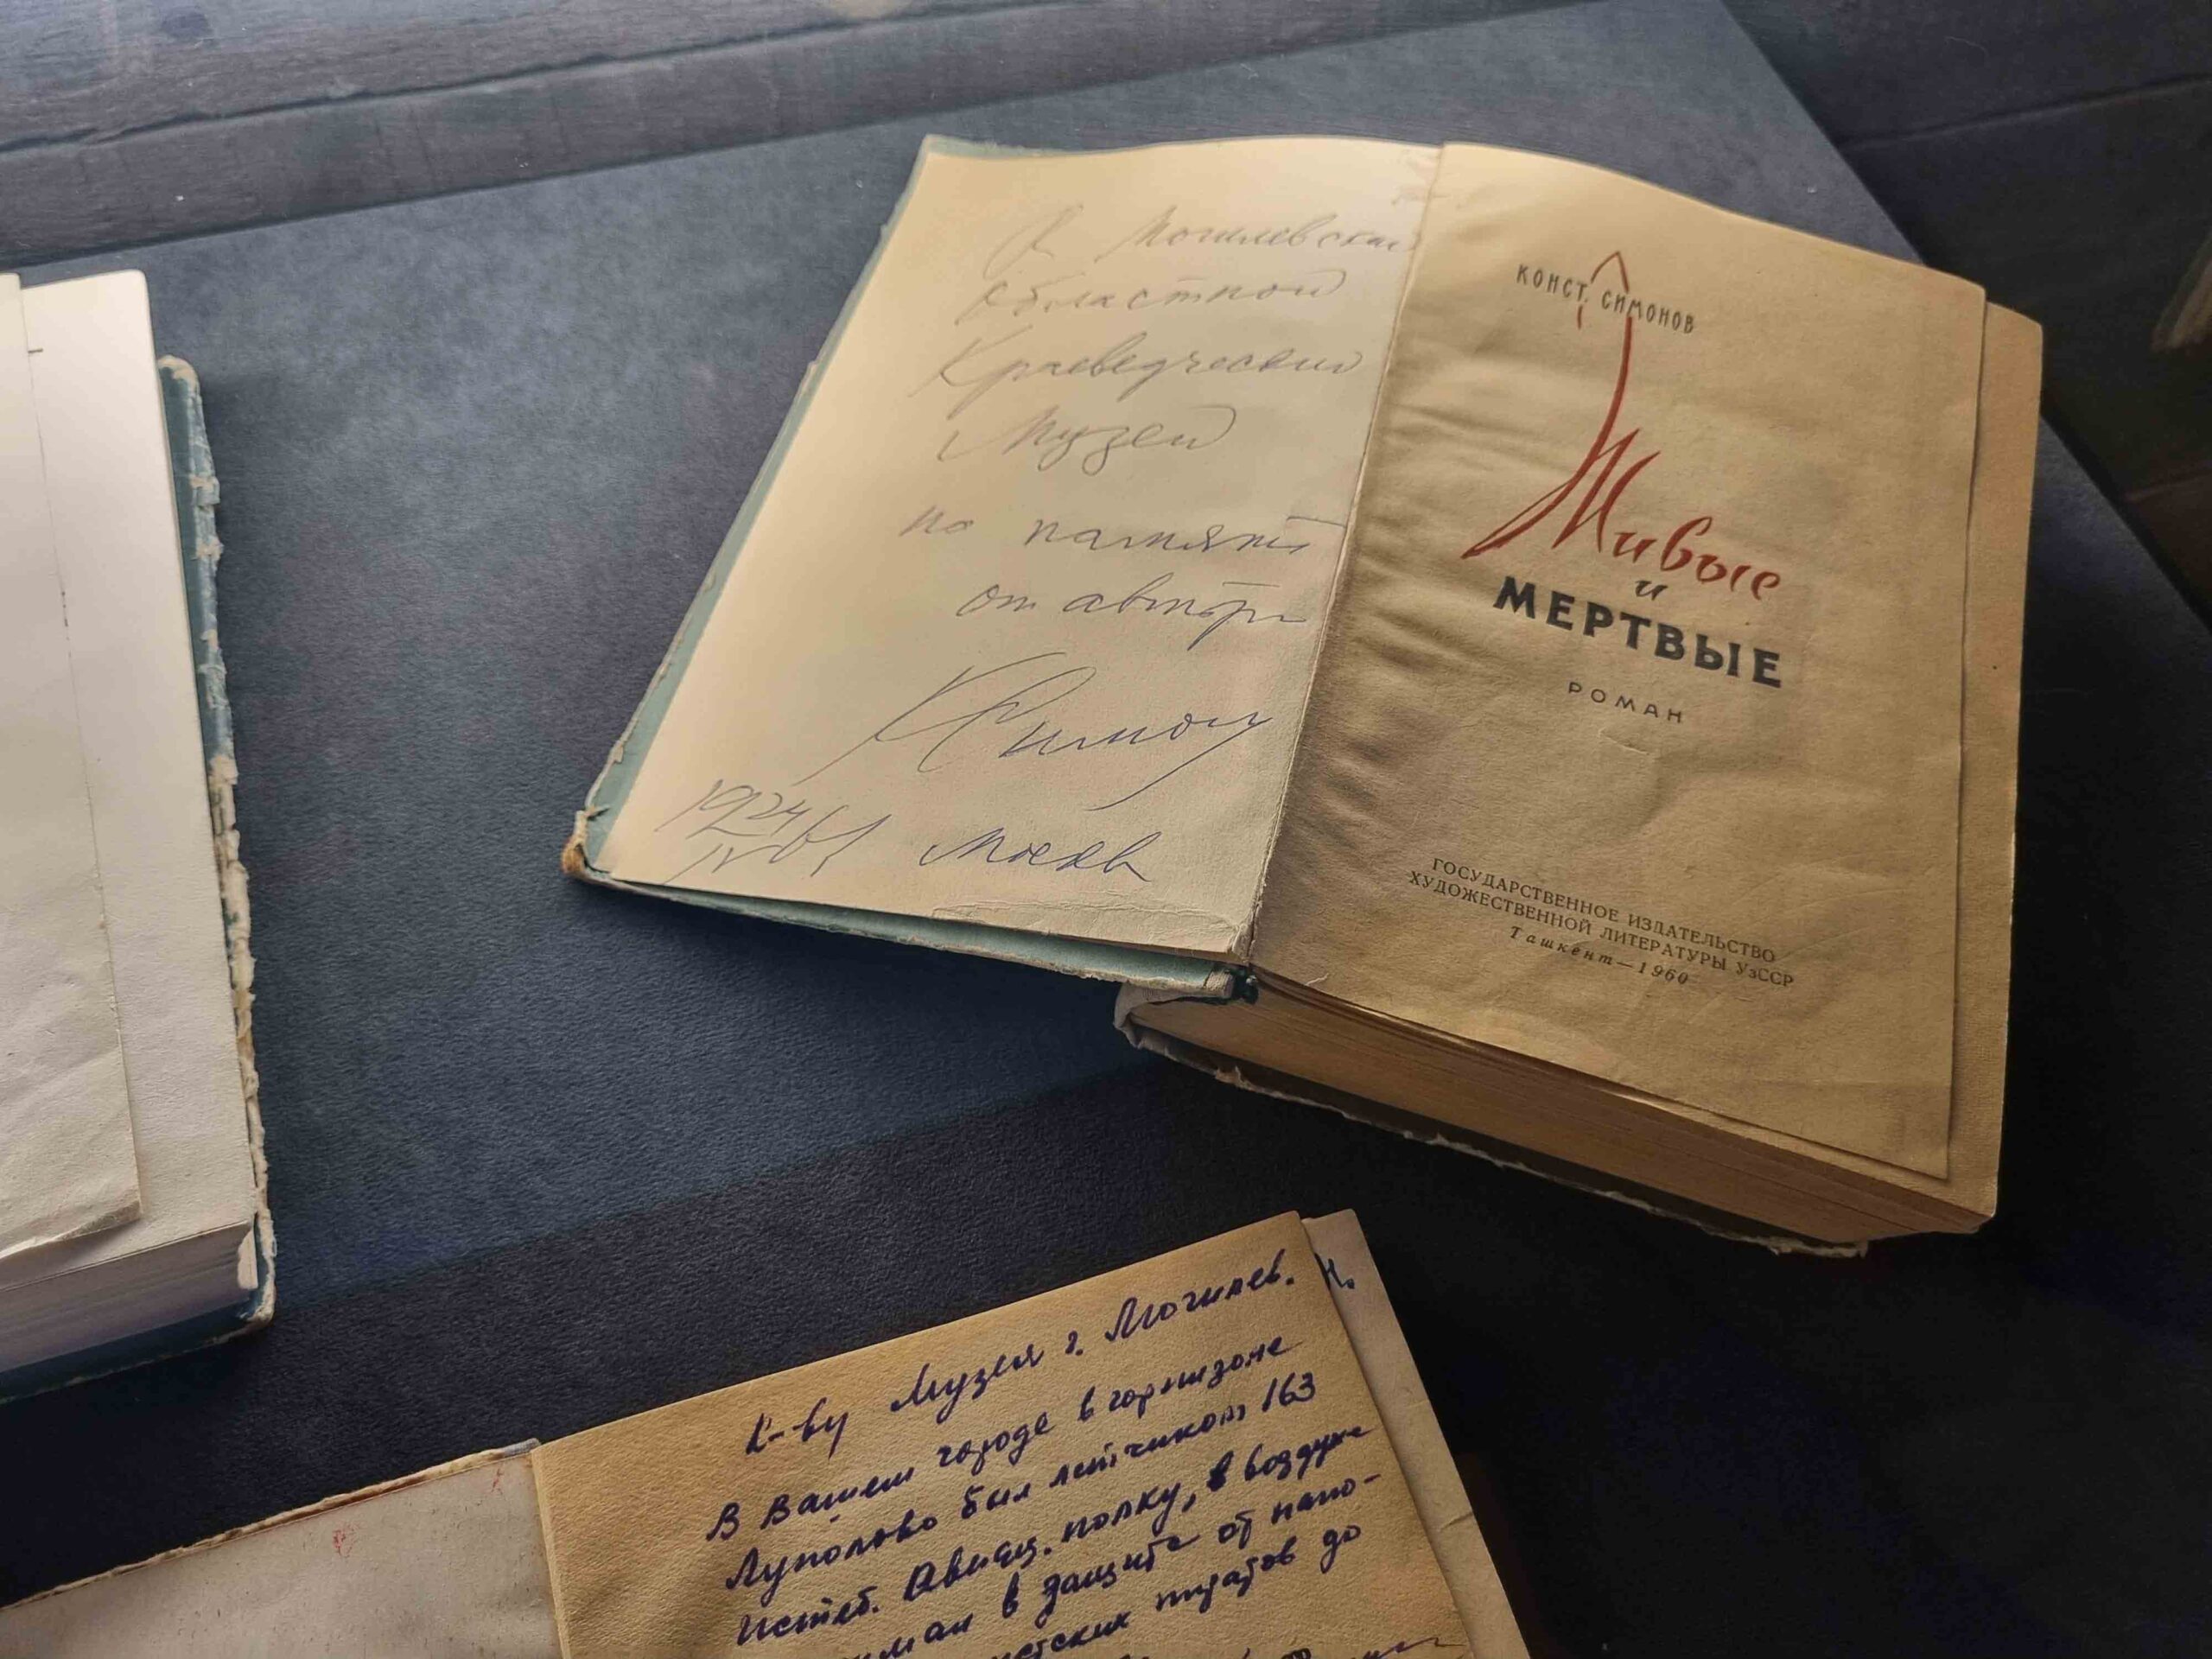 В Могилевский
областной
Краеведческий
Музей
на память
от автора
КСимонов
Москва
КОНСТ. СИМОНОВ
Живые
и
МЕРТВЫЕ
РОМАН
ГОСУДАРСТВЕННОЕ ИЗДАТЕЛЬСТВО
ХУДОЖЕСТВЕННОЙ ЛИТЕРАТУРЫ УзССР
Ташкент—1960
К-ву Музея г. Могилев.
В Вашем городе в гарнизоне
Луполово был летчиком 163
истеб. Авиац. полку, в воздухе
в защите от напо-
пиратов до